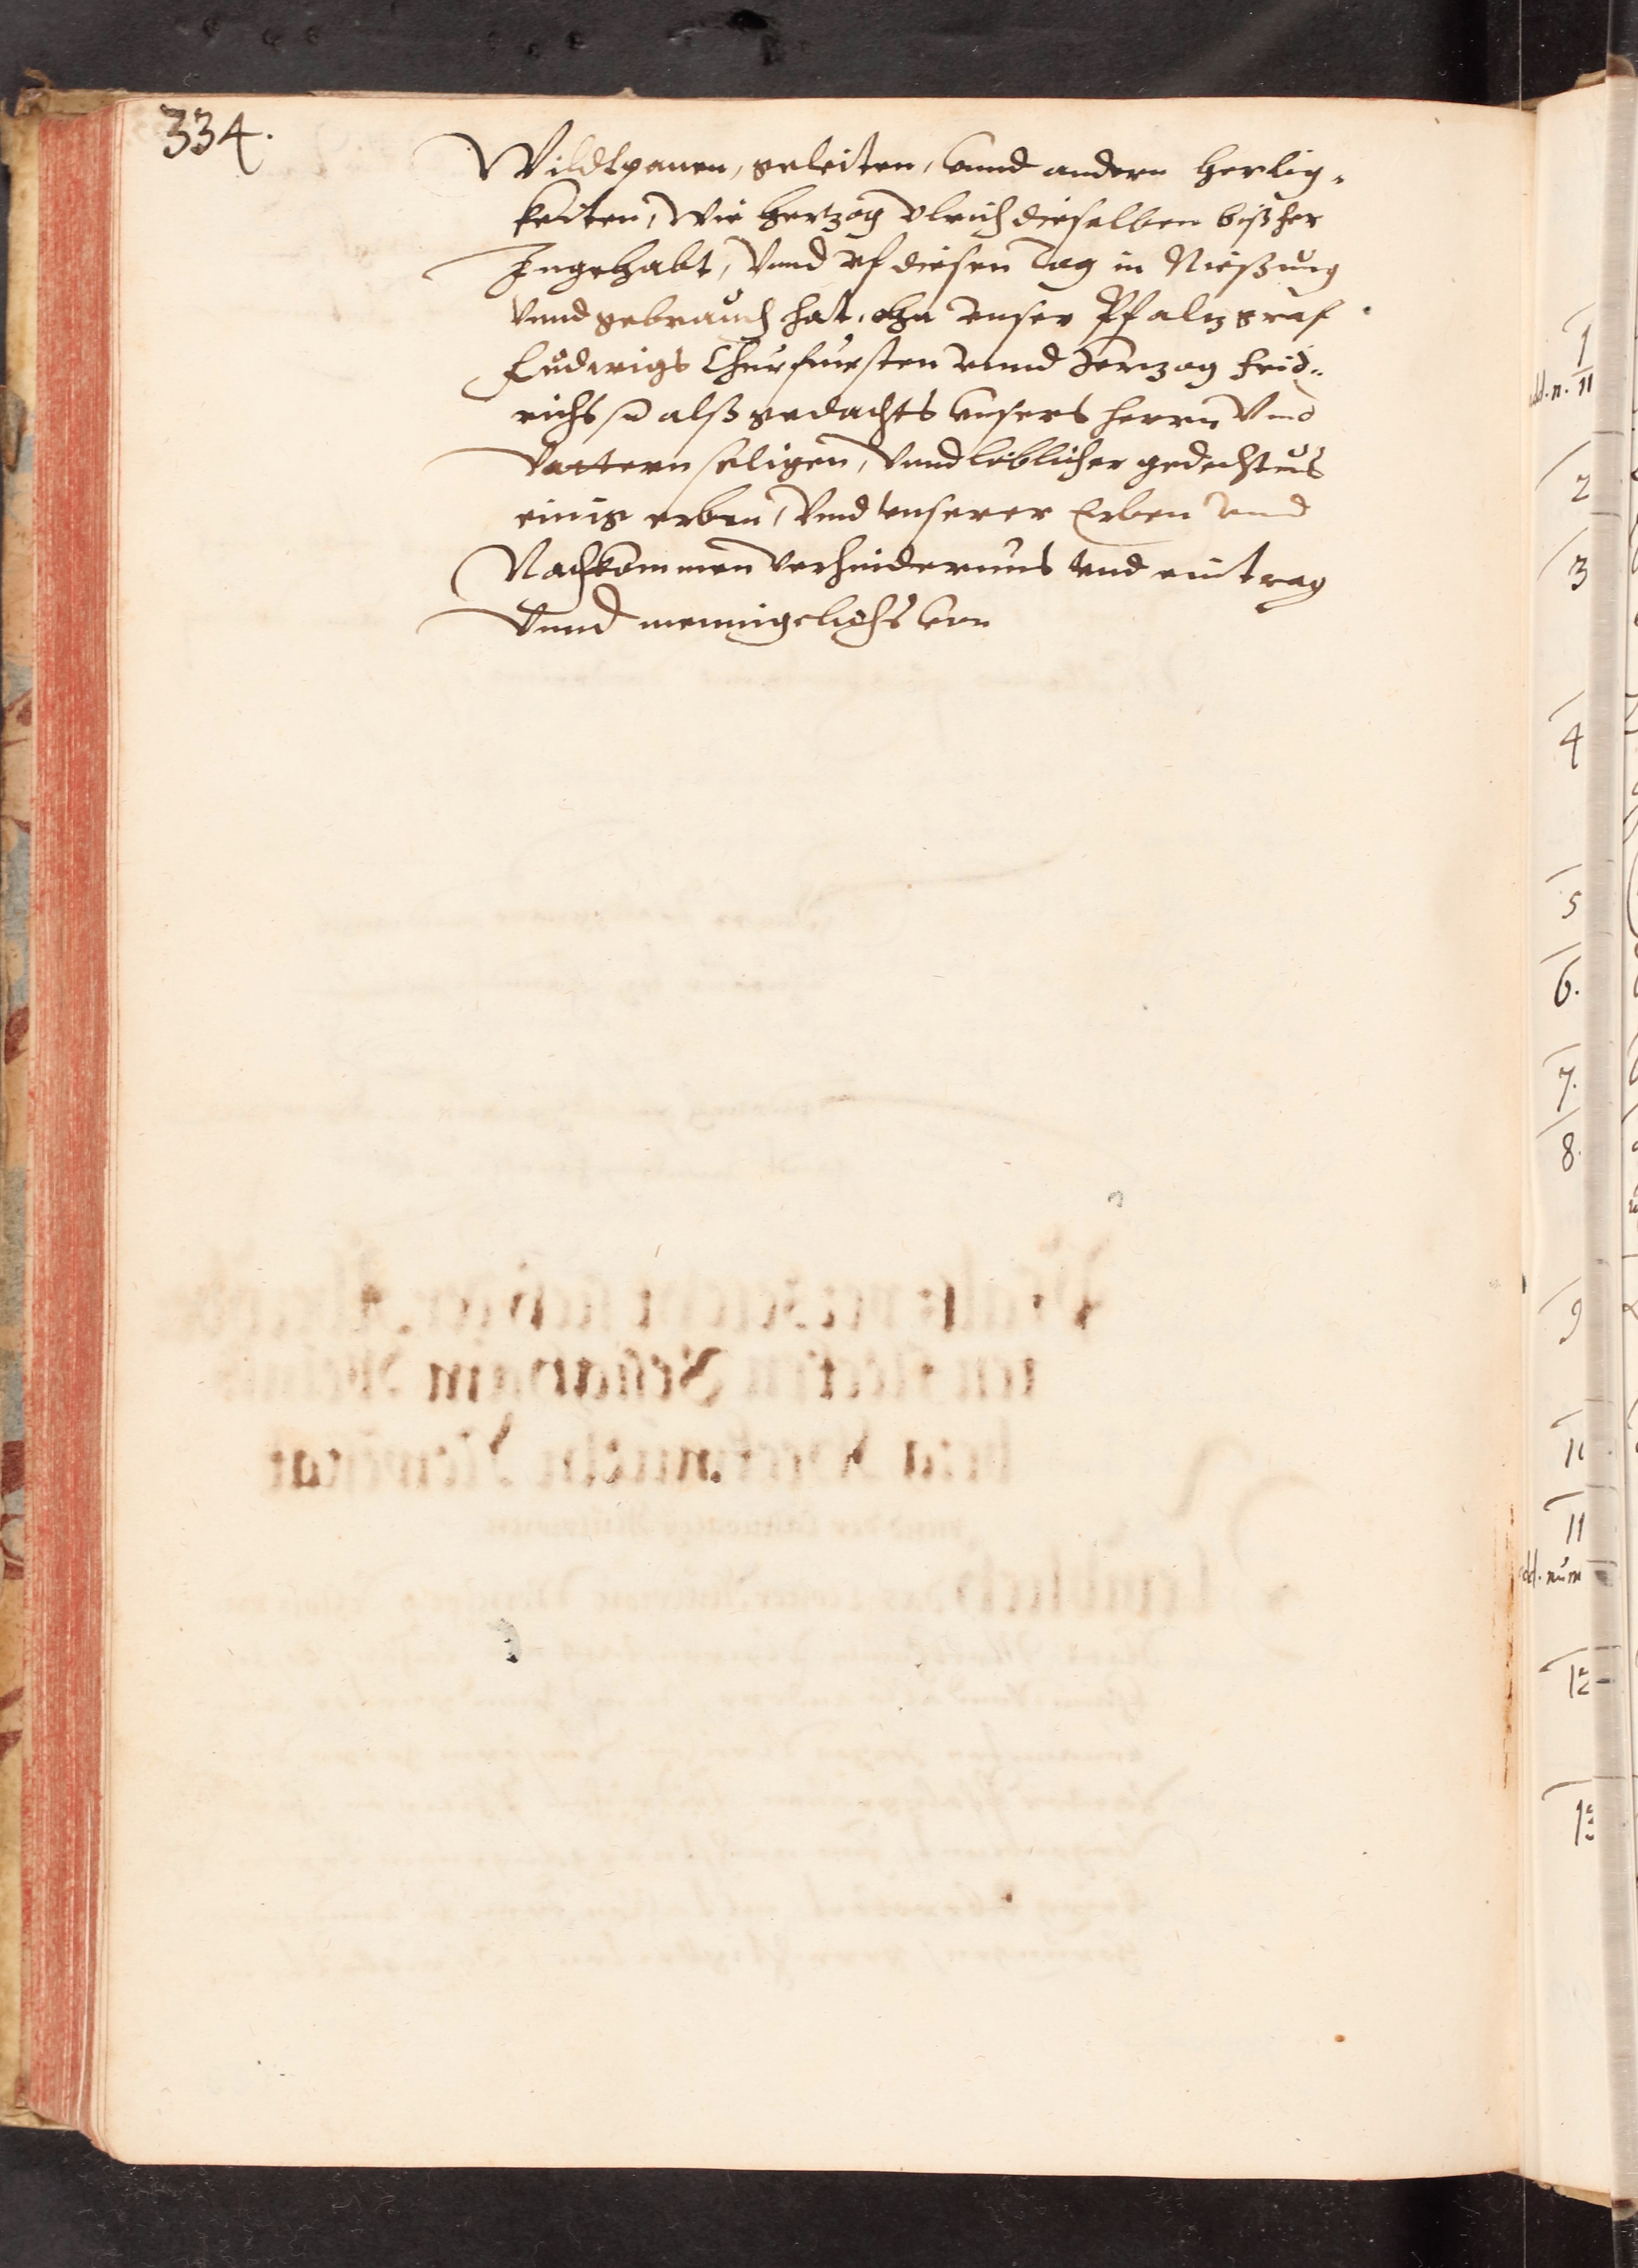 334.
Wildtpanen, geleiten, vnnd andern herlig-
keiten, Wie hertzog Vlrich dieselben bißher
Jngehabt, vnnd vf diesen Tag in Nießung
vnnd gebrauch hat, ohn vnser Pfaltzgraf
Ludwigs Churfürsten vnnd Hertzog Frid-
richs alß gedachts vnsers herrn Vnd
Vattern seligen, vnnd löblicher gedechtnus
einig erben, Vnd vnserer Erben Vnd
Nachkommen verhinderung vnd eintrag
Vnnd menniglichs von
1
add. n. 11
2
3
4
5
6.
7.
8.
9
11
add. num
12